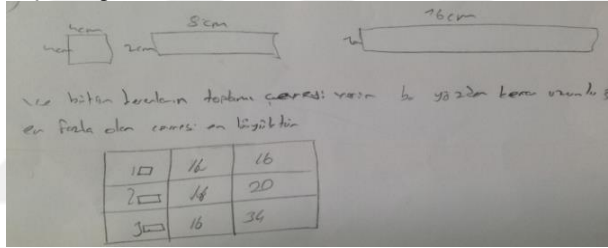 4cm 8cm 16cm
4cm 2cm
bütün kenarların toplamı çevresi verir bu yüzden kenar
en fazla olan çevresi en büyüktür
1 16 16
2 16 20
3 16 34